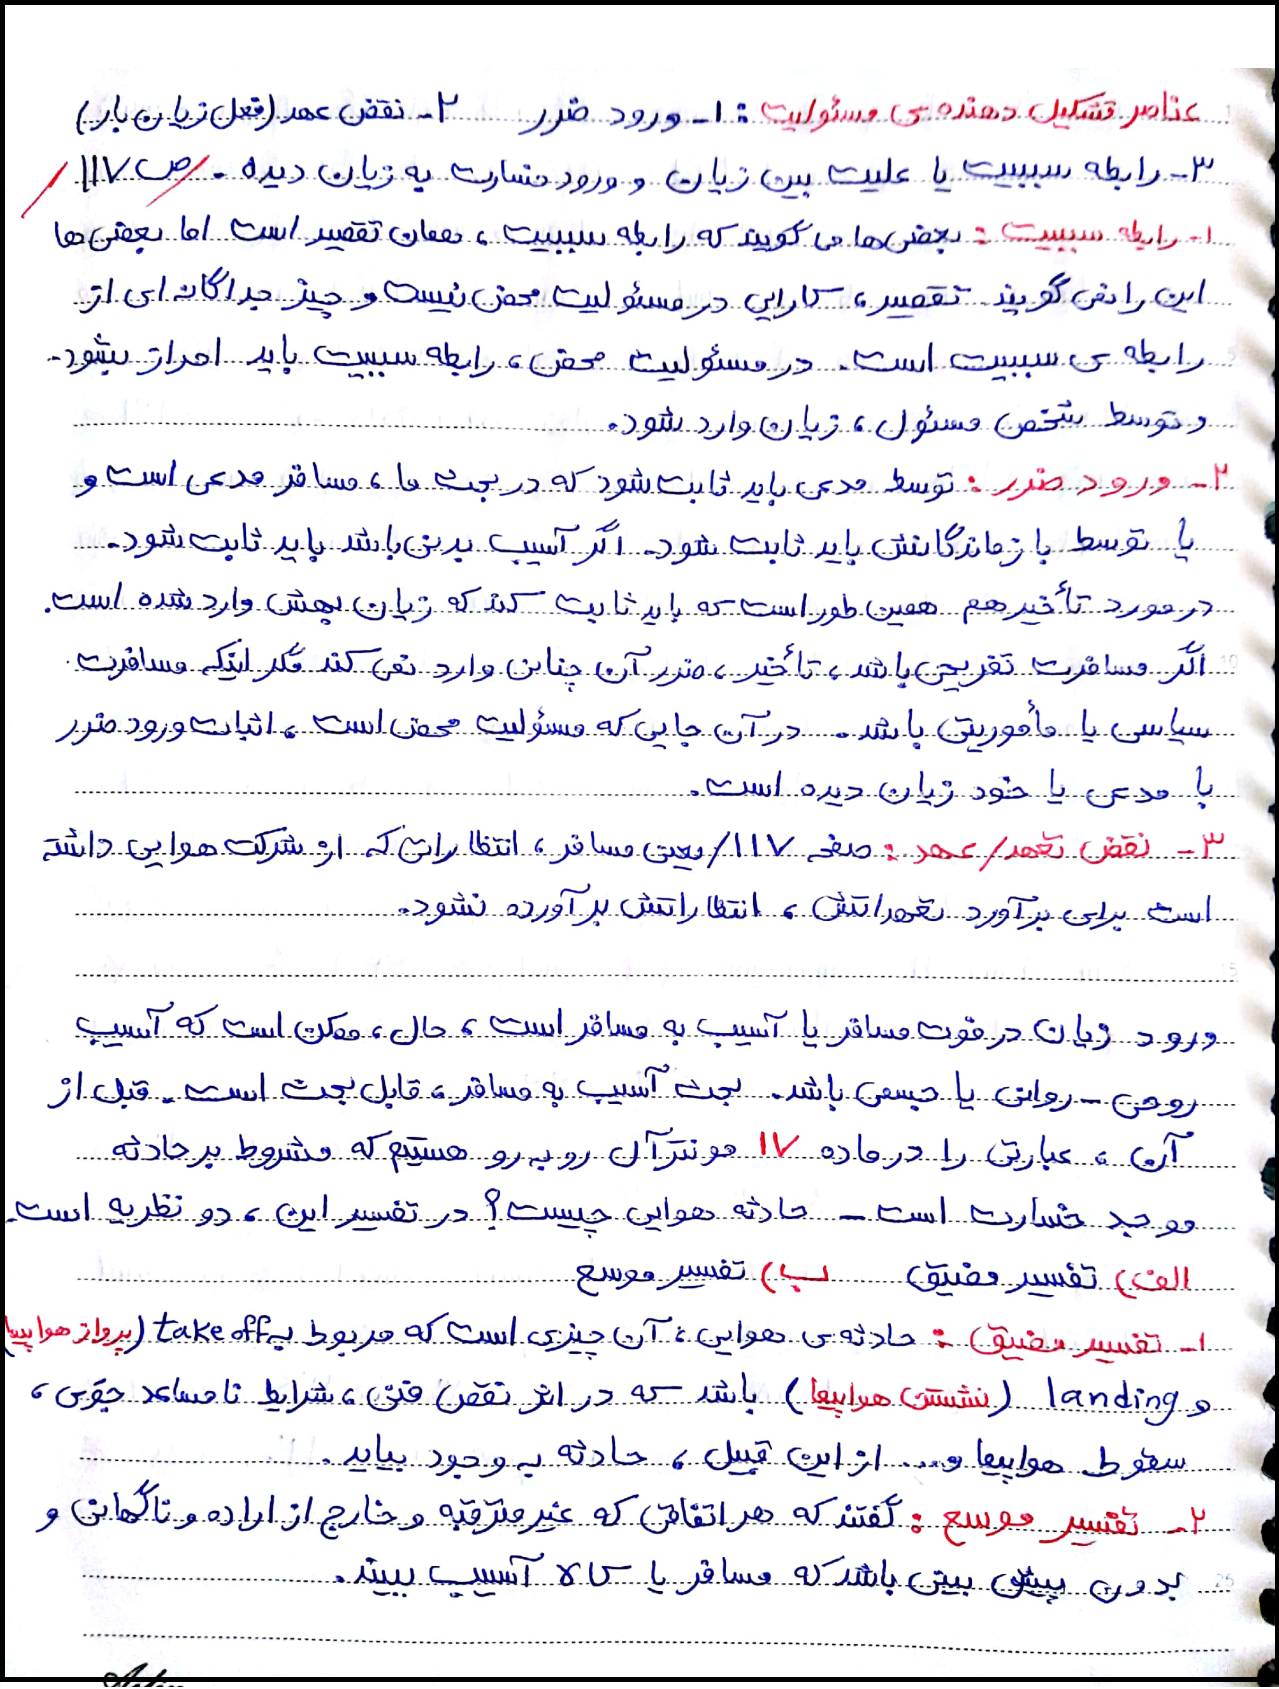 عناصر تشکیل دهنده ی مسئولیت : ۱- ورود ضرر ۲- نقض عهد (فعل زیان بار)
۳- رابطه سببیت یا علیت بین زیان و ورود خسارت به زیان دیده . / ص ۱۱۷ /
۱- رابطه سببیت : بعضی ها می گویند که رابطه سببیت ، همان تقصیر است اما بعضی ها
این را نمی گویند. تقصیر ، کارایی در مسئولیت محض نیست و چیز جداگانه ای از
رابطه ی سببیت است . در مسئولیت محض ، رابطه سببیت باید احراز بشود .
و توسط شخص مسئول ، زیان وارد شود .
۲- ورود ضرر : توسط مدعی باید ثابت شود که در بحث ما ، مسافر مدعی است و
یا توسط بازماندگانش باید ثابت شود . اگر آسیب بدنی باشد باید ثابت شود .
در مورد تأخیر هم همین طور است که باید ثابت کند که زیان بهش وارد شده است .
اگر مسافرت تفریحی باشد ، تأخیر ، ضرر آن چنانی وارد نمی کند مگر اینکه مسافرت
سیاسی یا مأموریتی باشد . در آن جایی که مسئولیت محض است ، اثبات ورود ضرر
با مدعی یا خود زیان دیده است .
۳- نقض تعهد/عهد : صفحه ۱۱۷ / یعنی مسافر ، انتظاراتی که از شرکت هوایی داشته
است برای برآورد تعهداتش ، انتظاراتش برآورده نشود .
ورود زیان در فوت مسافر یا آسیب به مسافر است ، حال ، ممکن است که آسیب
روحی - روانی یا جسمی باشد . بحث آسیب به مسافر ، قابل بحث است . قبل از
آن ، عبارتی را در ماده ۱۷ مونترآل روبه رو هستیم که مشروط بر حادثه
موجد خسارت است - حادثه هوایی چیست ؟ در تفسیر این ، دو نظریه است .
الف) تفسیر مضیق ب) تفسیر موسع
۱- تفسیر مضیق : حادثه ی هوایی ، آن چیزی است که مربوط به take off (پرواز هواپیما)
و landing (نشستن هواپیما) باشد که در اثر نقص فنی ، شرایط نامساعد جوّی ،
سقوط هواپیما و... از این قبیل ، حادثه به وجود بیاید .
۲- تفسیر موسع : گفتند که هر اتفاقی که غیرمترقبه و خارج از اراده و ناگهانی و
بدون پیش بینی باشد که مسافر یا کالا آسیب ببیند .